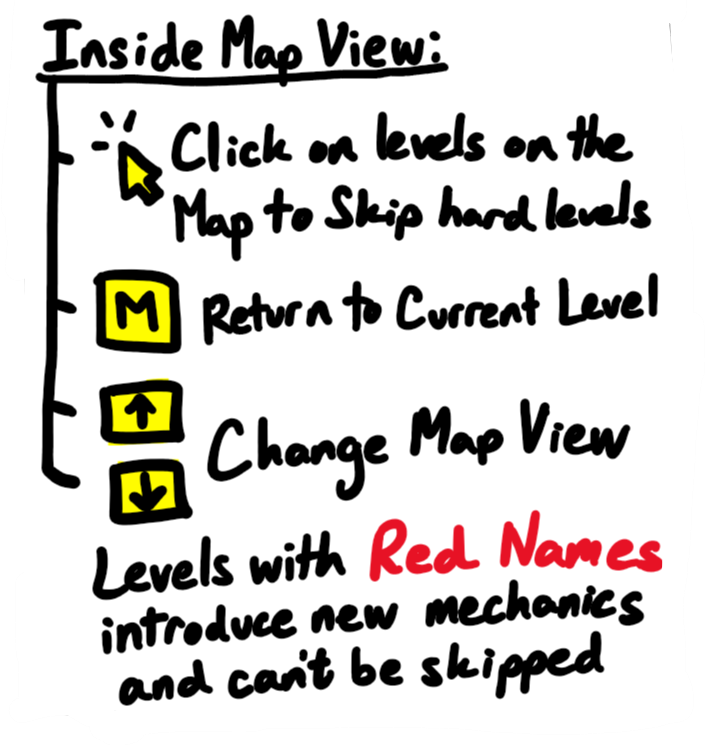 Inside Map View:
Click on levels on the
Map to Skip hard levels
M Return to Current Level
↑
Change Map View
↓
Levels with Red Names
introduce new mechanics
and can't be skipped